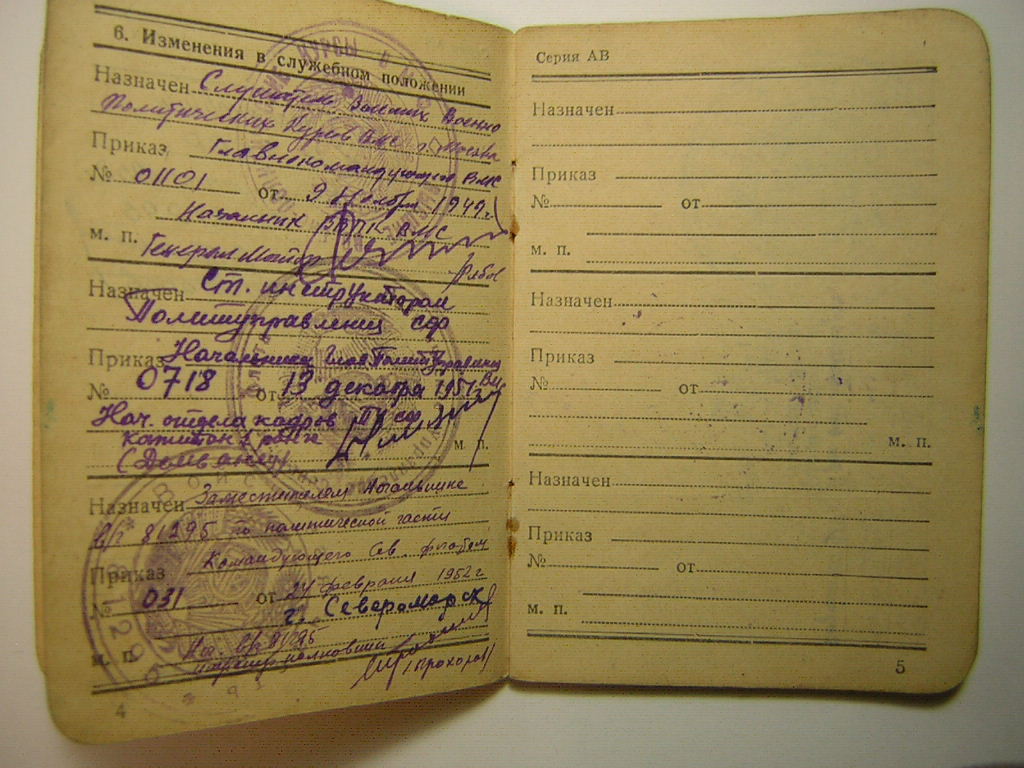 6. Изменения в служебном положении
Назначен Слушателем Высших Военно
Политических Курсов ВМС г. Москва
Приказ Главнокомандующего ВМС
№ 01101 от 9 Ноября 1949 г.
Начальник ВМС
м. п. Генерал Майор
Назначен Ст. инструктором
Политуправления СФ
Приказ Начальника Глав. Политуправления
№ 0718 от 13 декабря 1951
Нач. отдела кадров ПУ СФ
капитан 2 ранга
м. п.
Назначен Заместителем Начальника
в/ч 81295 по политической части
Приказ Командующего Сев. флотом
№ 031 от 24 февраля 1952 г
г. Североморск
м. п. Нач. в/ч 81295
полковник (Прохоров)
4
Серия АВ
Назначен
Приказ
№ от
м. п.
Назначен
Приказ
№ от
м. п.
Назначен
Приказ
№ от
м. п.
5